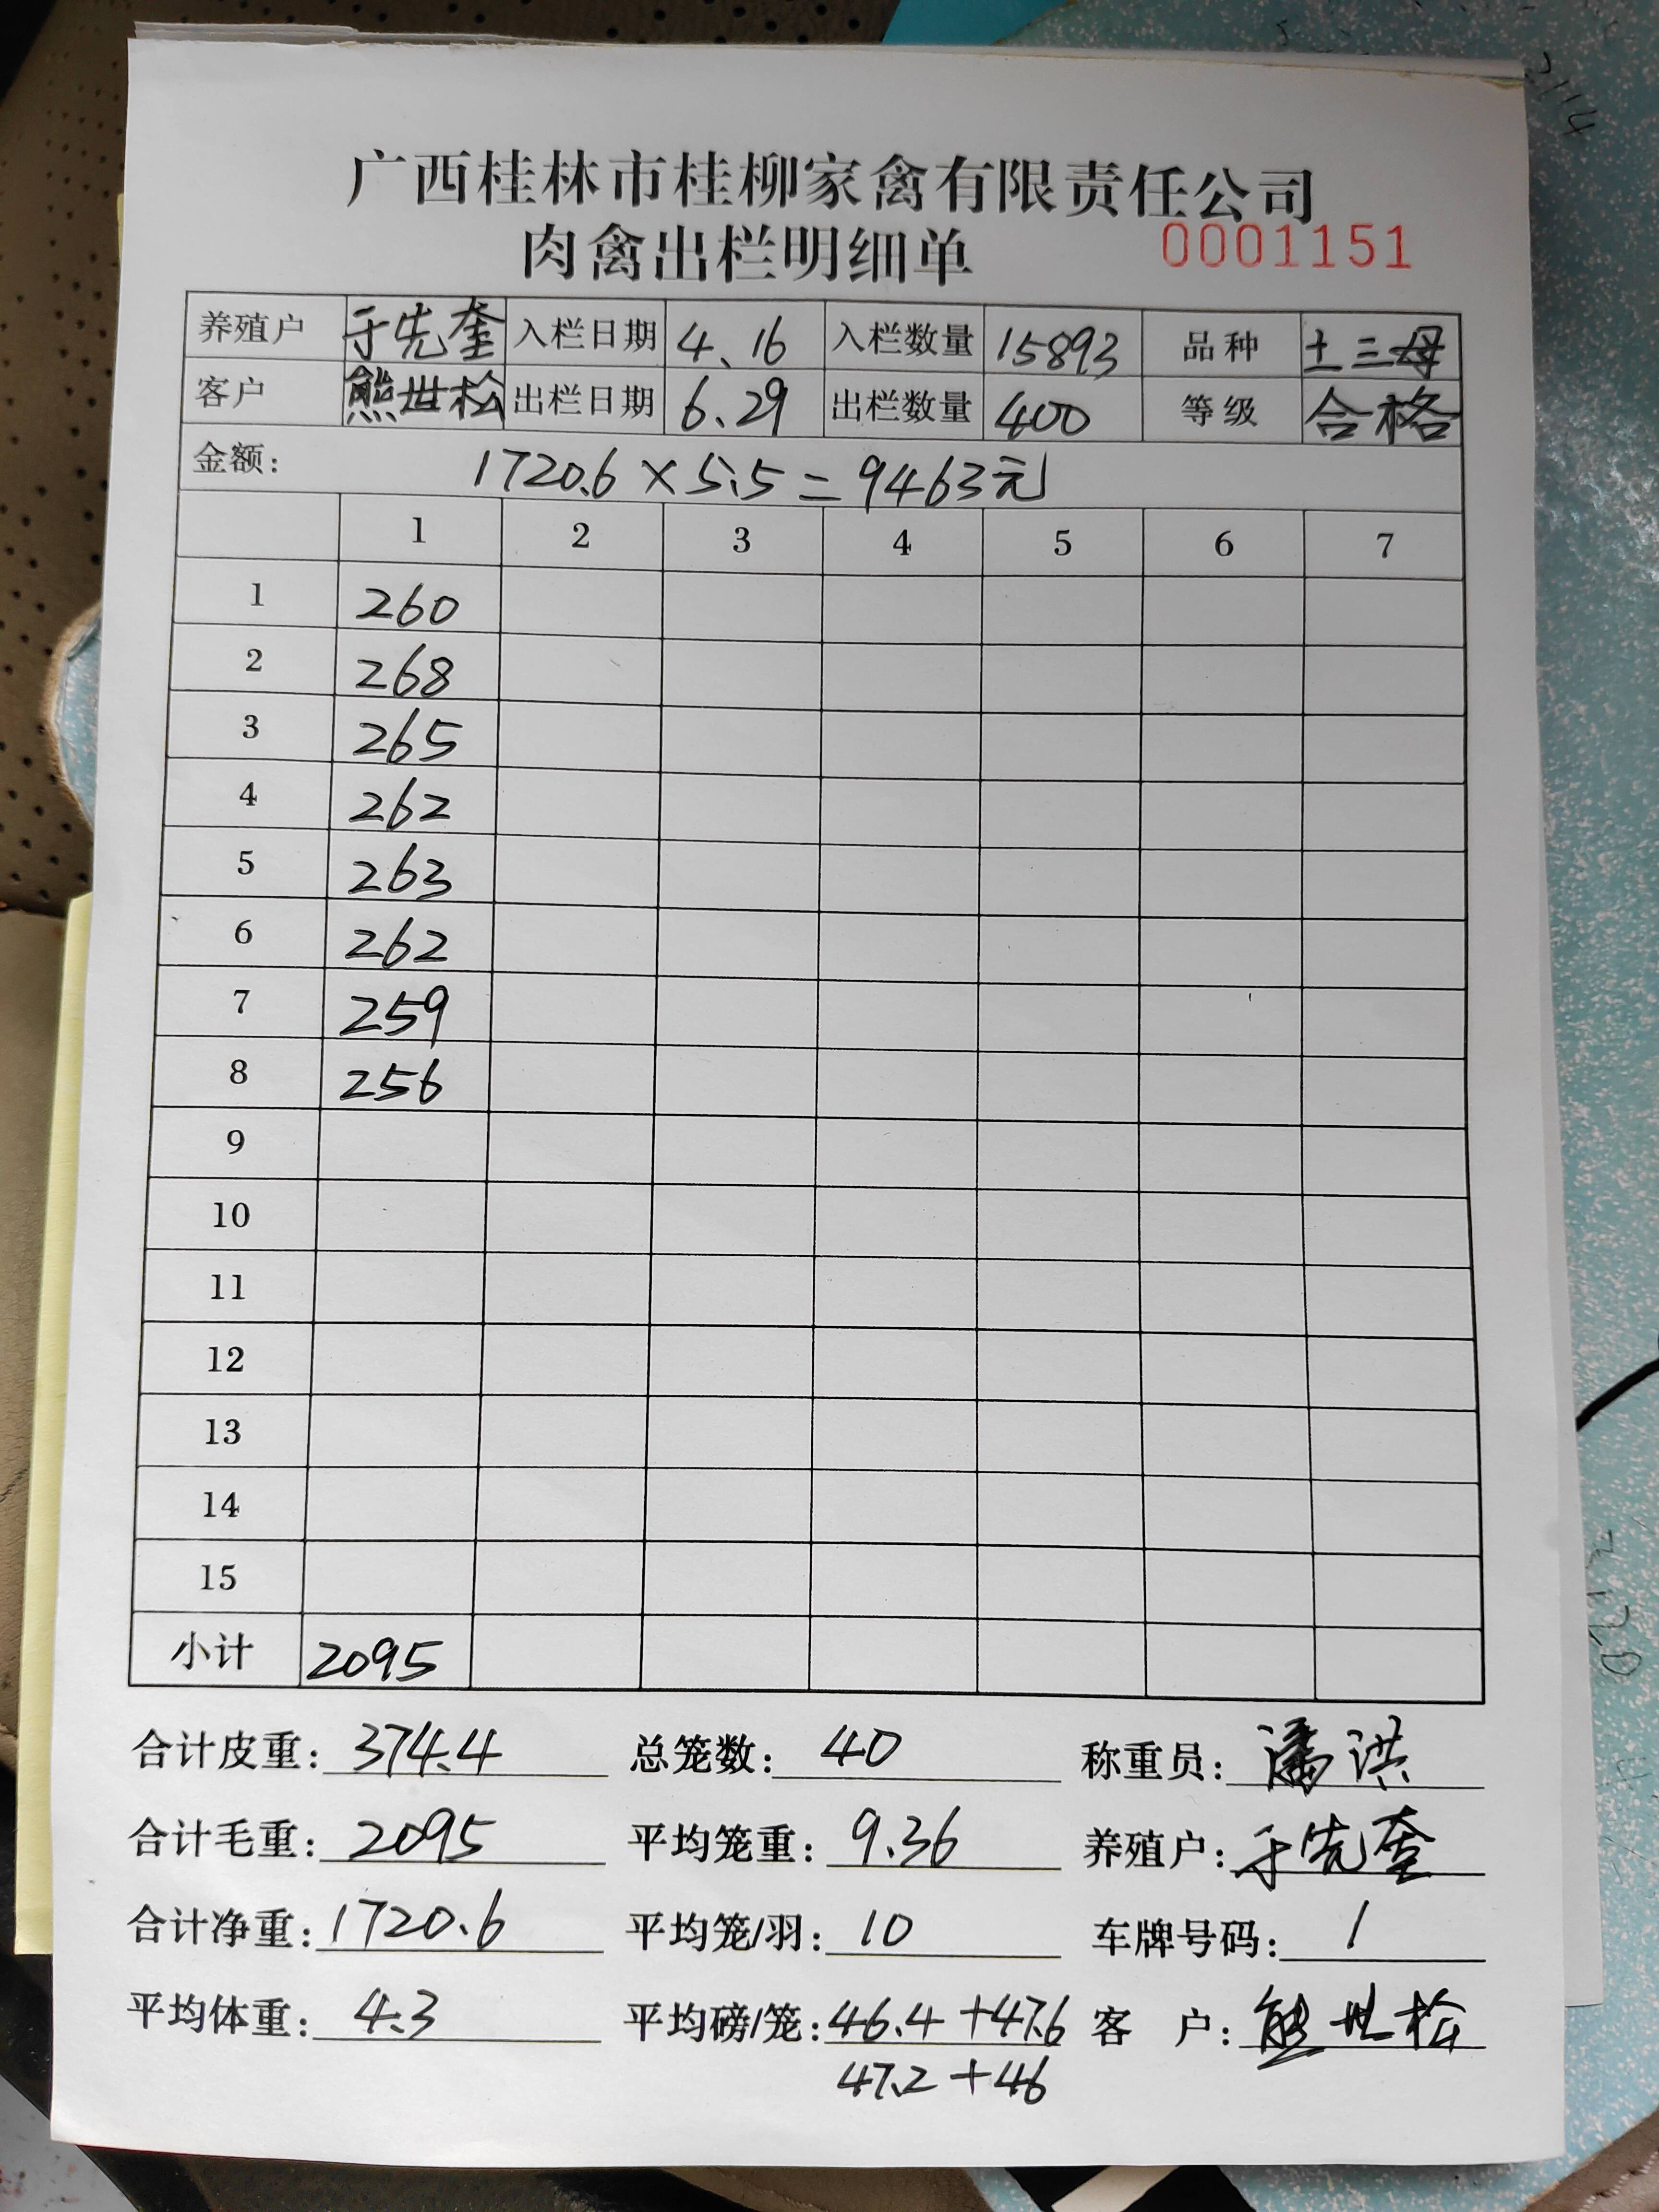 广西桂林市桂柳家禽有限责任公司
肉禽出栏明细单 0001151
养殖户 于先奎 入栏日期 4.16 入栏数量 15893 品种 土三母
客户 熊世松 出栏日期 6.29 出栏数量 400 等级 合格
金额: 1720.6×5.5=9463元
1 2 3 4 5 6 7
1 260
2 268
3 265
4 262
5 263
6 262
7 259
8 256
9
10
11
12
13
14
15
小计 2095
合计皮重: 374.4 总笼数: 40 称重员: 潘洪
合计毛重: 2095 平均笼重: 9.36 养殖户: 于先奎
合计净重: 1720.6 平均笼/羽: 10 车牌号码: 1
平均体重: 4.3 平均磅/笼: 46.4+47.6 客 户: 熊世松
47.2+46